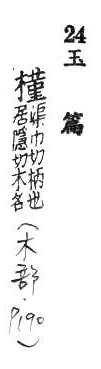 24 玉篇
槿 渠巾切柄也 居隱切木名 (木部·P.190)